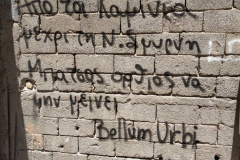 Από τα Λαμινέα
μέχρι τη Ν. Σμύρνη
Μπάτσος όρθιος να
μην μείνει
Bellum Urbi